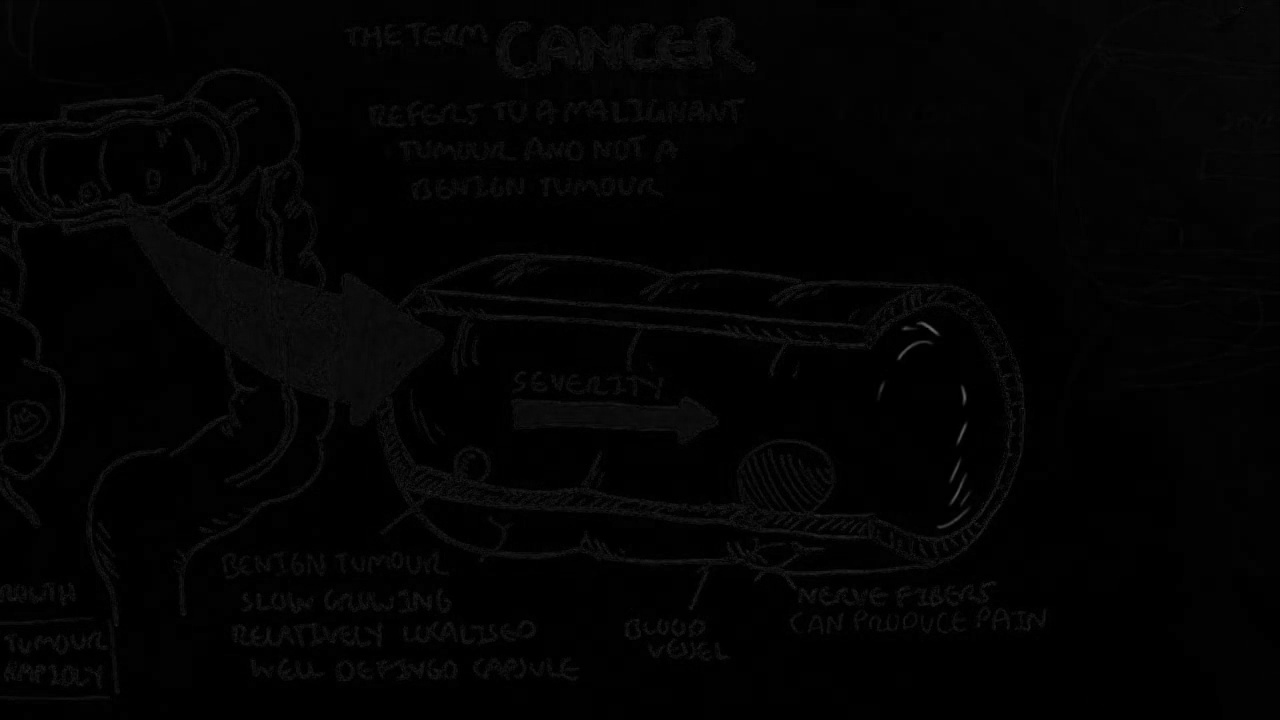 THE TERM CANCER
REFERS TO A MALIGNANT
TUMOUR AND NOT A
BENIGN TUMOUR
SEVERITY
BENIGN TUMOUR
SLOW GROWING
RELATIVELY LOCALISED
WELL DEFINED CAPSULE
BLOOD
VESSEL
NERVE FIBERS
CAN PRODUCE PAIN
TUMOUR
RAPIDLY